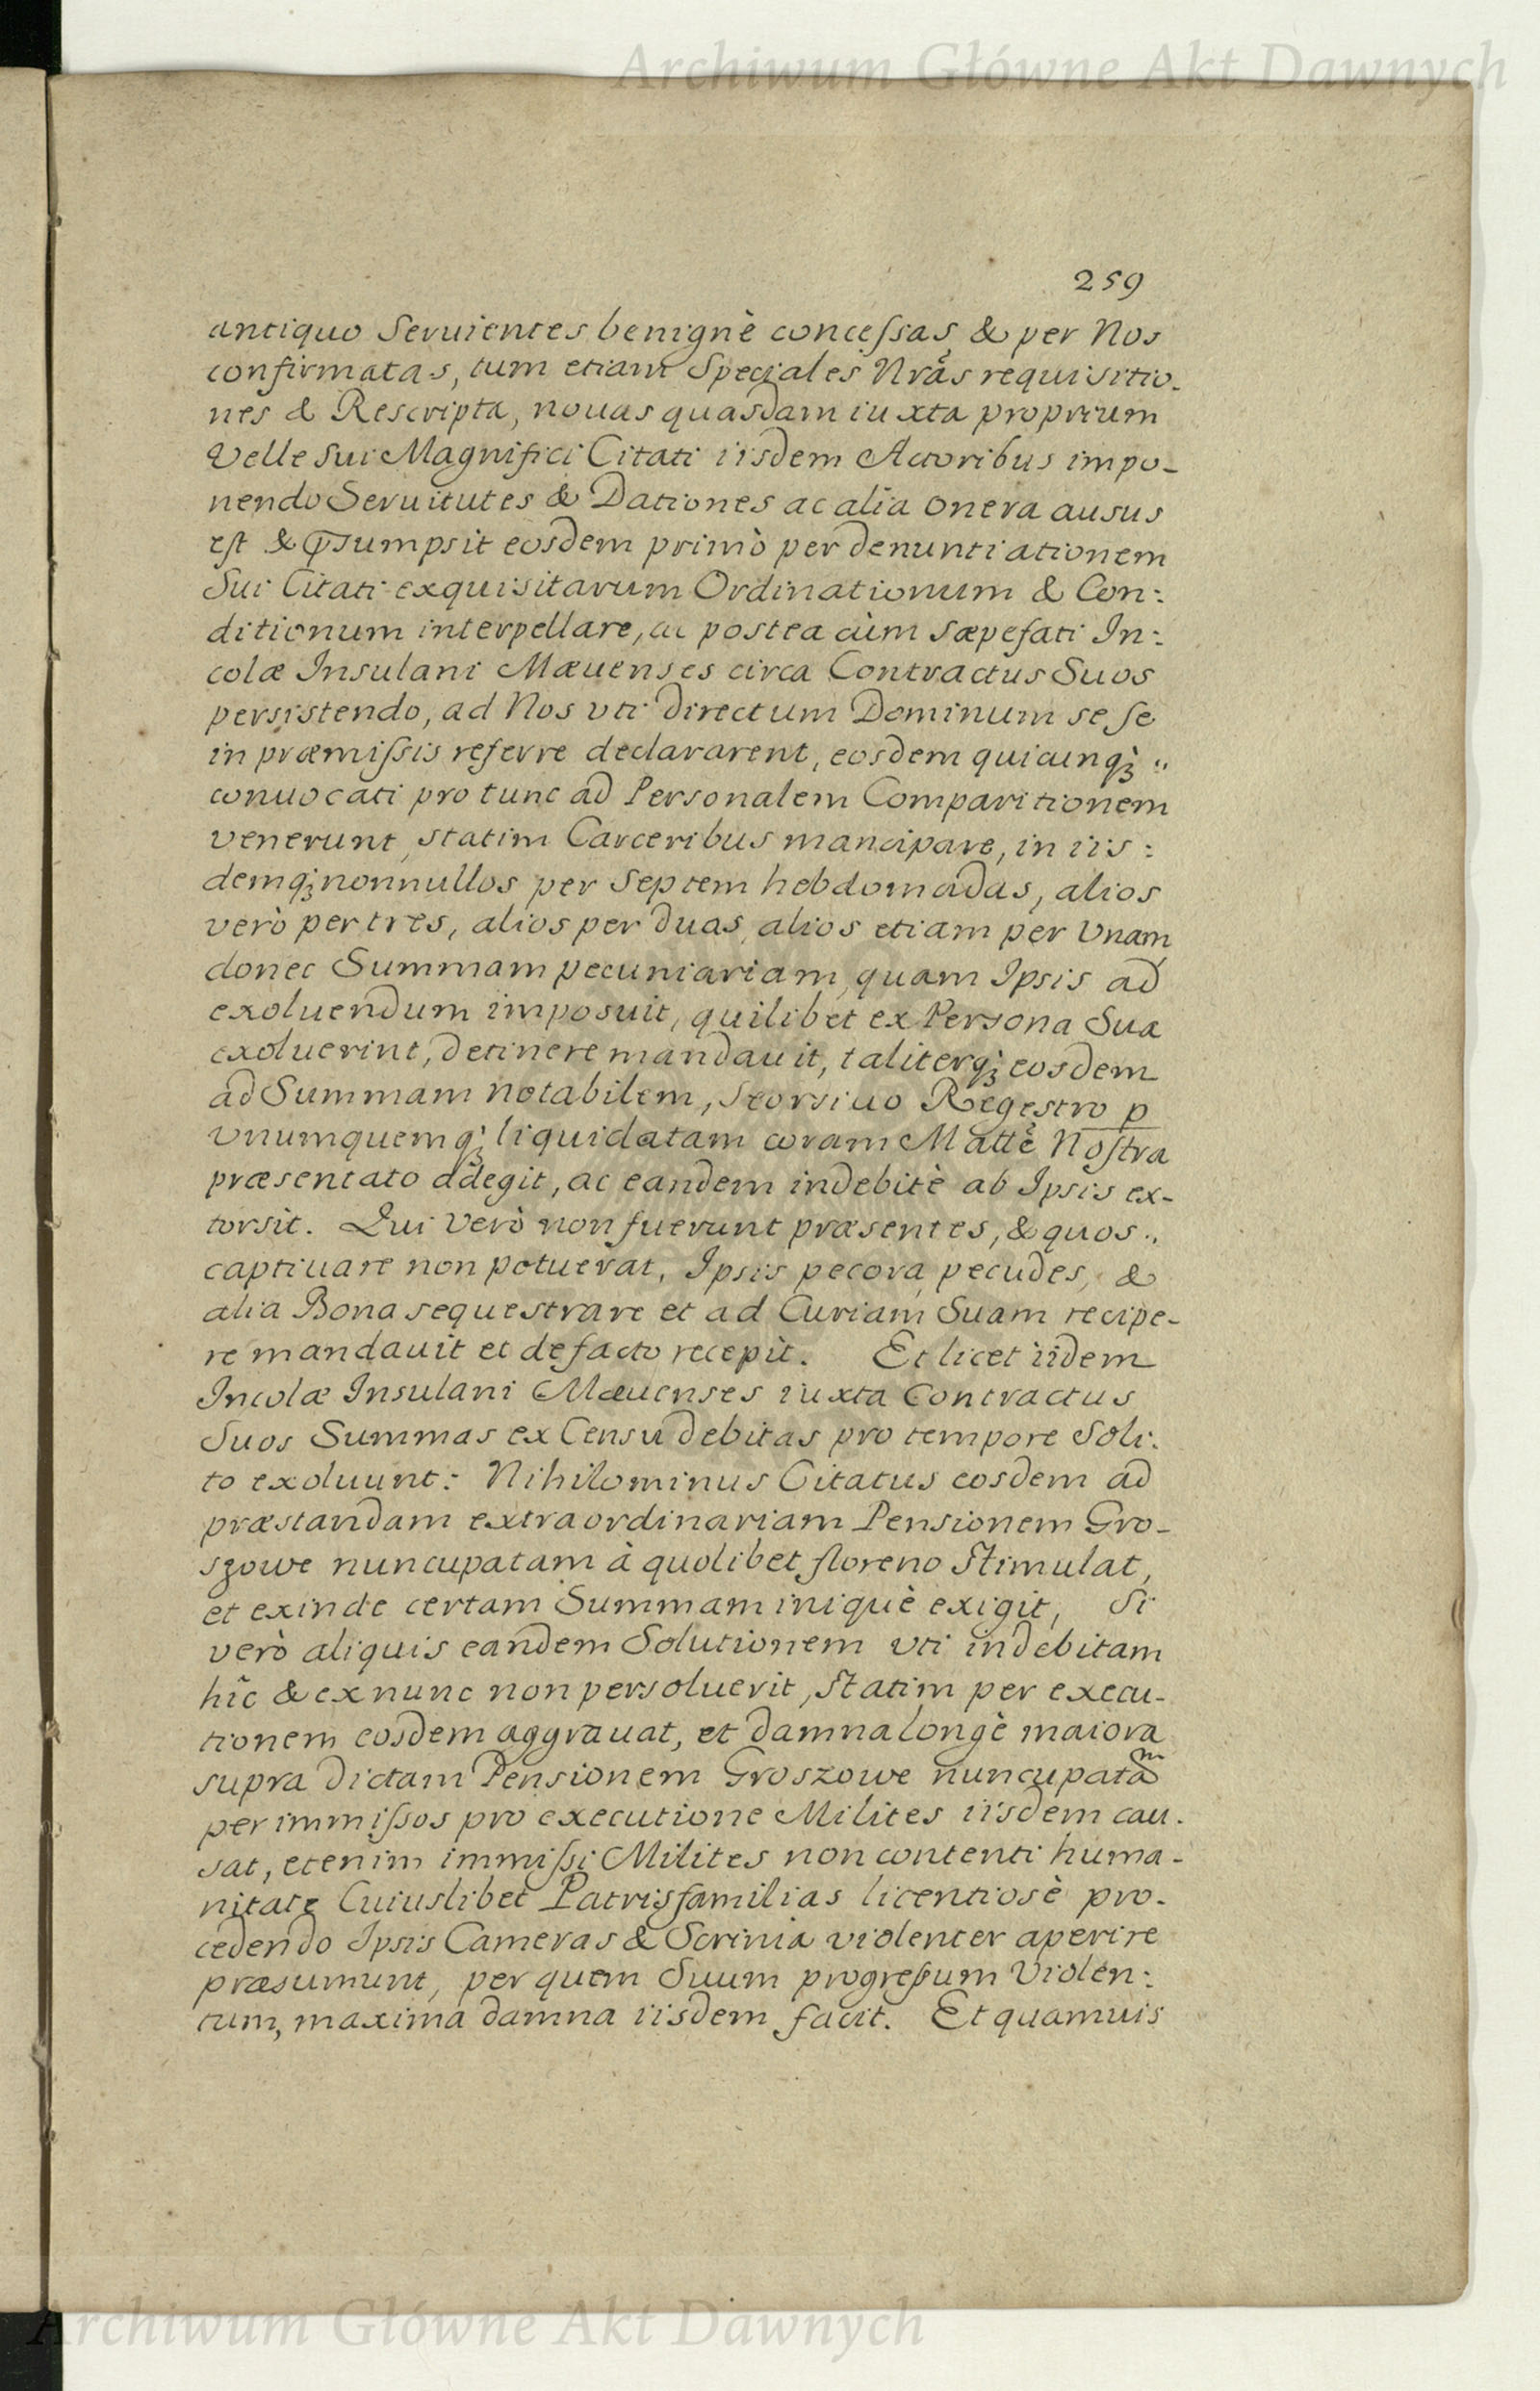 Archiwum Główne Akt Dawnych
259
antiquo Seruientes benignè conceſsas, & per Nos
confirmatas, tum etiam Speciales Nrãs requisitio-
nes & Rescripta, nouas quasdam iuxta proprium
Velle Sui Magnifici Citati iisdem Actoribus impo-
nendo Seruitutes & Dationes ac alia onera ausus
est & p̄sumpsit eosdem primò per denuntiationem
Sui Citati exquisitarum Ordinationum & Con:
ditionum interpellare, ac postea cùm sæpefati In:
colæ Insulani Mæuenses circa Contractus Suos
persistendo, ad Nos vti directum Dominum se se
in præmiſsis referre declararent, eosdem quicunqꝫ „
conuocati pro tunc ad Personalem Comparitionem
venerunt, statim Carceribus mancipare, in iis:
demqꝫ nonnullos per Septem hebdomadas, alios
verò per tres, alios per duas, alios etiam per Vnam,
donec Summam pecuniariam, quam Ipsis ad
exoluendum imposuit, quilibet ex Persona Sua
exoluerint, detinere mandauit, taliterqꝫ eosdem
ad Summam notabilem, Seorsiuo Regestro p
vnumquemqꝫ liquidatam coram Mattẽ Nostra
præsentato adegit, ac eandem indebitè ab Ipsis ex-
torsit. Qui verò non fuerunt præsentes, & quos „
captiuare non potuerat, Ipsis pecora, pecudes, &
alia Bona sequestrare et ad Curiam Suam recipe-
re mandauit et defacto recepit. Et licet iidem
Incolæ Insulani Mæuenses iuxta Contractus
Suos Summas ex Censu debitas pro tempore Soli:
to exoluunt: Nihilominus Citatus eosdem ad
præstandam extraordinariam Pensionem Gro-
szowe nuncupatam à quolibet floreno Stimulat,
et exinde certam Summam iniquè exigit, Si
verò aliquis eandem Solutionem vti indebitam
hîc & ex nunc non persoluerit, Statim per execu-
tionem eosdem aggrauat, et damna longè maiora
supra dictam Pensionem Groszowe nuncupatãm
per immiſsos pro executione Milites iisdem cau-
sat, etenim immiſsi Milites non contenti huma-
nitate Cuiuslibet Patrisfamilias licentiosè pro-
cedendo Ipsis Cameras & Scrinia violenter aperire
præsumunt, per quem Suum progreſsum Violen:
tum, maxima damna iisdem facit. Et quamuis
Archiwum Główne Akt Dawnych